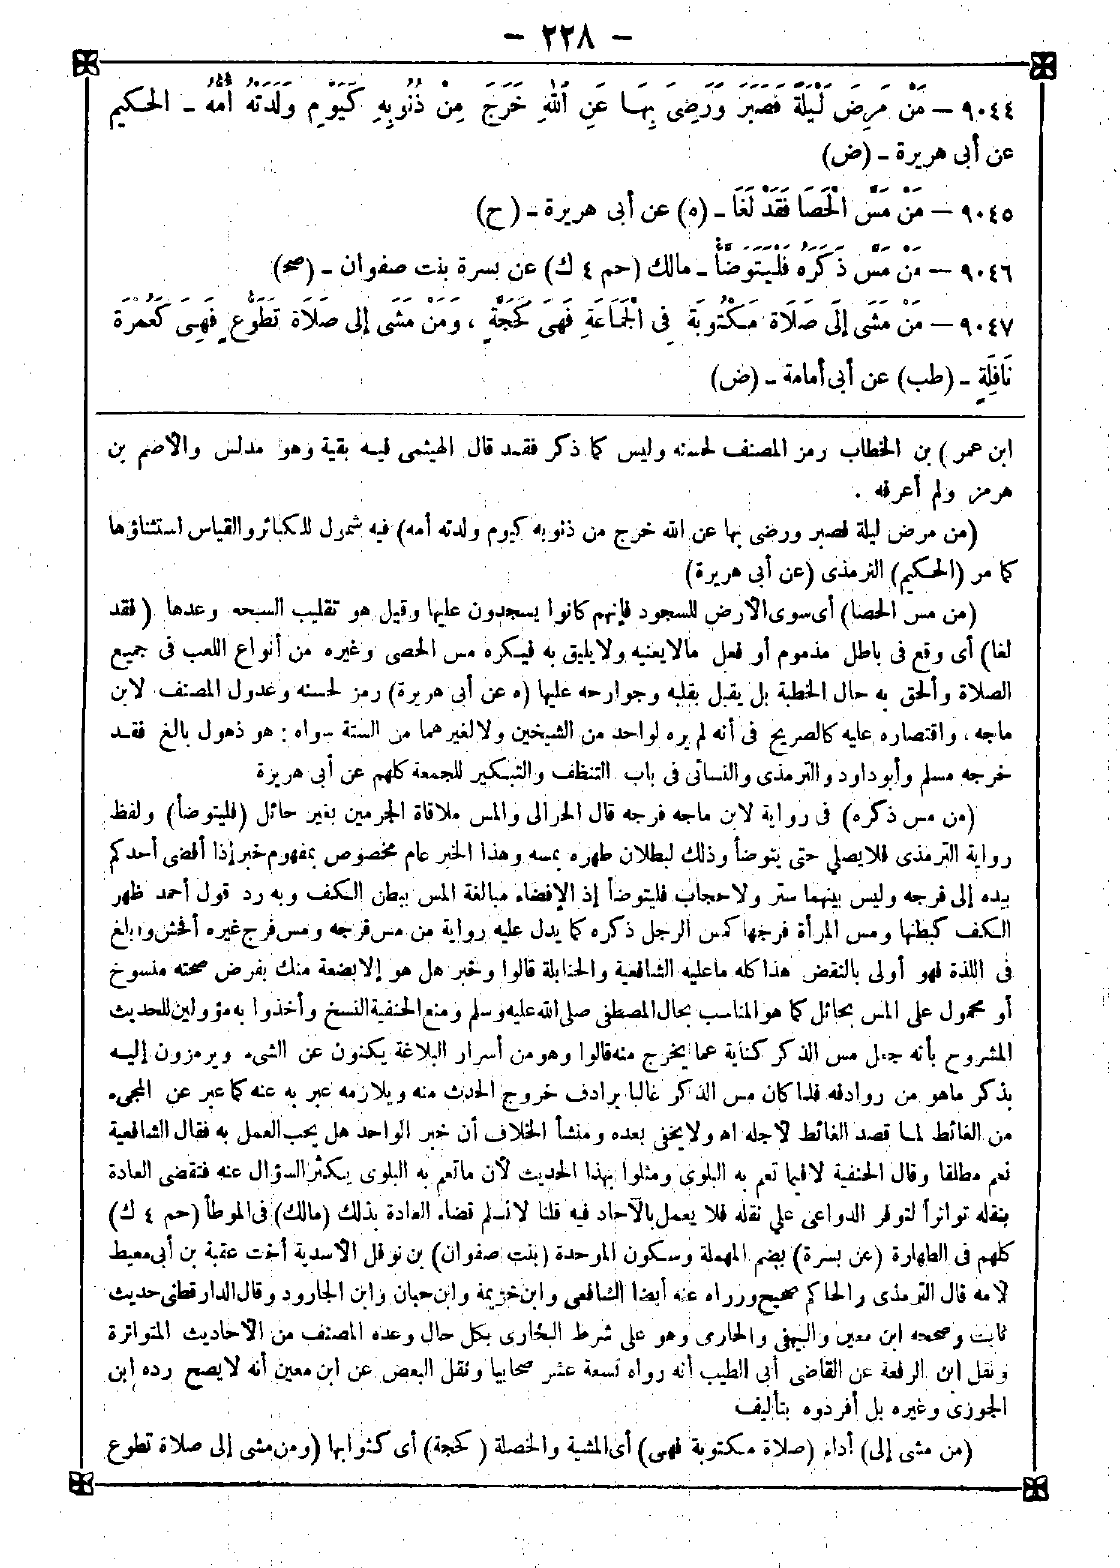 – ٢٢٨ –
٩٠٤٤ – مَنْ مَرِضَ لَيْلَةً فَصَبَرَ وَرَضِىَ بِهَا عَنِ اللهِ خَرَجَ مِنْ ذُنُوبِهِ كَيَوْمِ وَلَدَتْهُ أُمُّهُ - الحكيم
عن أبى هريرة - (ض)
٩٠٤٥ – مَنْ مَسَّ الْحَصَا فَقَدْ لَغَا - (ه) عن أبى هريرة - (ح)
٩٠٤٦ – مَنْ مَسَّ ذَكَرَهُ فَلْيَتَوَضَّأْ - مالك (حم ٤ ك) عن بسرة بنت صفوان - (صح)
٩٠٤٧ – مَنْ مَشَى إِلَى صَلَاةٍ مَكْتُوبَةٍ فِى الْجَمَاعَةِ فَهِىَ كَحَجَّةٍ ، وَمَنْ مَشَى إلى صَلَاةِ تَطَوُّعٍ فَهِىَ كَعُمْرَةٍ
نَافِلَةٍ - (طب) عن أبى أمامة - (ض)
ابن عمر ) بن الخطاب رمز المصنف لحسنه وليس كما ذكر فقد قال الهيثمى فيه بقية وهو مدلس والأصم بن
هرمز ولم أعرفه .
(من مرض ليلة فصبر ورضى بها عن الله خرج من ذنوبه كيوم ولدته أمه) فيه شمول للكبائر والقياس استثناؤها
كما مر (الحكيم) الترمذى (عن أبى هريرة)
(من مس الحصا) أى سوى الأرض للسجود فإنهم كانوا يسجدون عليها وقيل هو تقليب السبحه وعدها (فقد
لغا) أى وقع فى باطل مذموم أو فعل مالايعنيه ولايليق به فيكره مس الحصى وغيره من أنواع اللعب فى جميع
الصلاة وألحق به حال الخطبة بل يقبل بقلبه وجوارحه عليها (ه عن أبى هريرة) رمز لحسنه وعدول المصنف لابن
ماجه ، واقتصاره عليه كالصريح فى أنه لم يره لواحد من الشيخين ولالغيرهما من الستة سواه : هو ذهول بالغ فقد
خرجه مسلم وأبوداود والترمذى والنسائى فى باب التنظف والتبكير للجمعة كلهم عن أبى هريرة
(من مس ذكره) فى رواية لابن ماجه فرجه قال الحرالى والمس ملاقاة الجرمين بغير حائل (فليتوضأ) ولفظ
رواية الترمذى فلايصلي حتى يتوضأ وذلك لبطلان طهره بمسه وهذا الخبر عام مخصوص بمفهوم خبر إذا أفضى أحدكم
بيده إلى فرجه وليس بينهما ستر ولاحجاب فليتوضأ إذ الإفضاء مبالغة المس ببطن الكف وبه رد قول أحمد ظهر
الكف كبطنها ومس المرأة فرجها كمس الرجل ذكره كما يدل عليه رواية من مس فرجه ومس فرج غيره أفحش وأبلغ
فى اللذة فهو أولى بالنقض هذا كله ماعليه الشافعية والحنابلة قالوا وخبر هل هو إلا بضعة منك بفرض صحته منسوخ
أو محمول على المس بحائل كما هو المناسب بحال المصطفى صلى الله عليه وسلم ومنع الحنفية النسخ وأخذوا به مؤولين للحديث
المشروح بأنه جعل مس الذكر كناية عما يخرج منه قالوا وهو من أسرار البلاغة يكنون عن الشىء ويرمزون إليه
بذكر ماهو من روادفه فلما كان مس الذكر غالبا يرادف خروج الحدث منه ويلازمه عبر به عنه كما عبر عن المجىء
من الغائط لما قصد الغائط لأجله اه ولايخفى بعده ومنشأ الخلاف أن خبر الواحد هل يجب العمل به فقال الشافعية
نعم مطلقا وقال الحنفية لا فيما تعم به البلوى ومثلوا بهذا الحديث لأن ماتعم به البلوى يكثر السؤال عنه فتقضى العادة
بنقله تواتراً لتوفر الدواعى علي نقله فلا يعمل بالآحاد فيه قلنا لانسلم قضاء العادة بذلك (مالك) فى الموطأ (حم ٤ ك)
كلهم فى الطهارة (عن بسرة) بضم المهملة وسكون الموحدة (بنت صفوان) بن نوفل الأسدية أخت عقبة بن أبى معيط
لأمه قال الترمذى والحاكم صحيح ورواه عنه أيضا الشافعى وابن خزيمة وابن حبان وابن الجارود وقال الدارقطنى حديث
ثابت وصححه ابن معين والبيهقى والحازمى وهو على شرط البخارى بكل حال وعده المصنف من الأحاديث المتواترة
ونقل ابن الرفعة عن القاضى أبى الطيب أنه رواه تسعة عشر صحابيا ونقل البعض عن ابن معين أنه لايصح رده ابن
الجوزى وغيره بل أفردوه بتأليف
(من مشى إلى) أداء (صلاة مكتوبة فهى) أى المشية والخصلة (كحجة) أى كثوابها (ومن مشى إلى صلاة تطوع